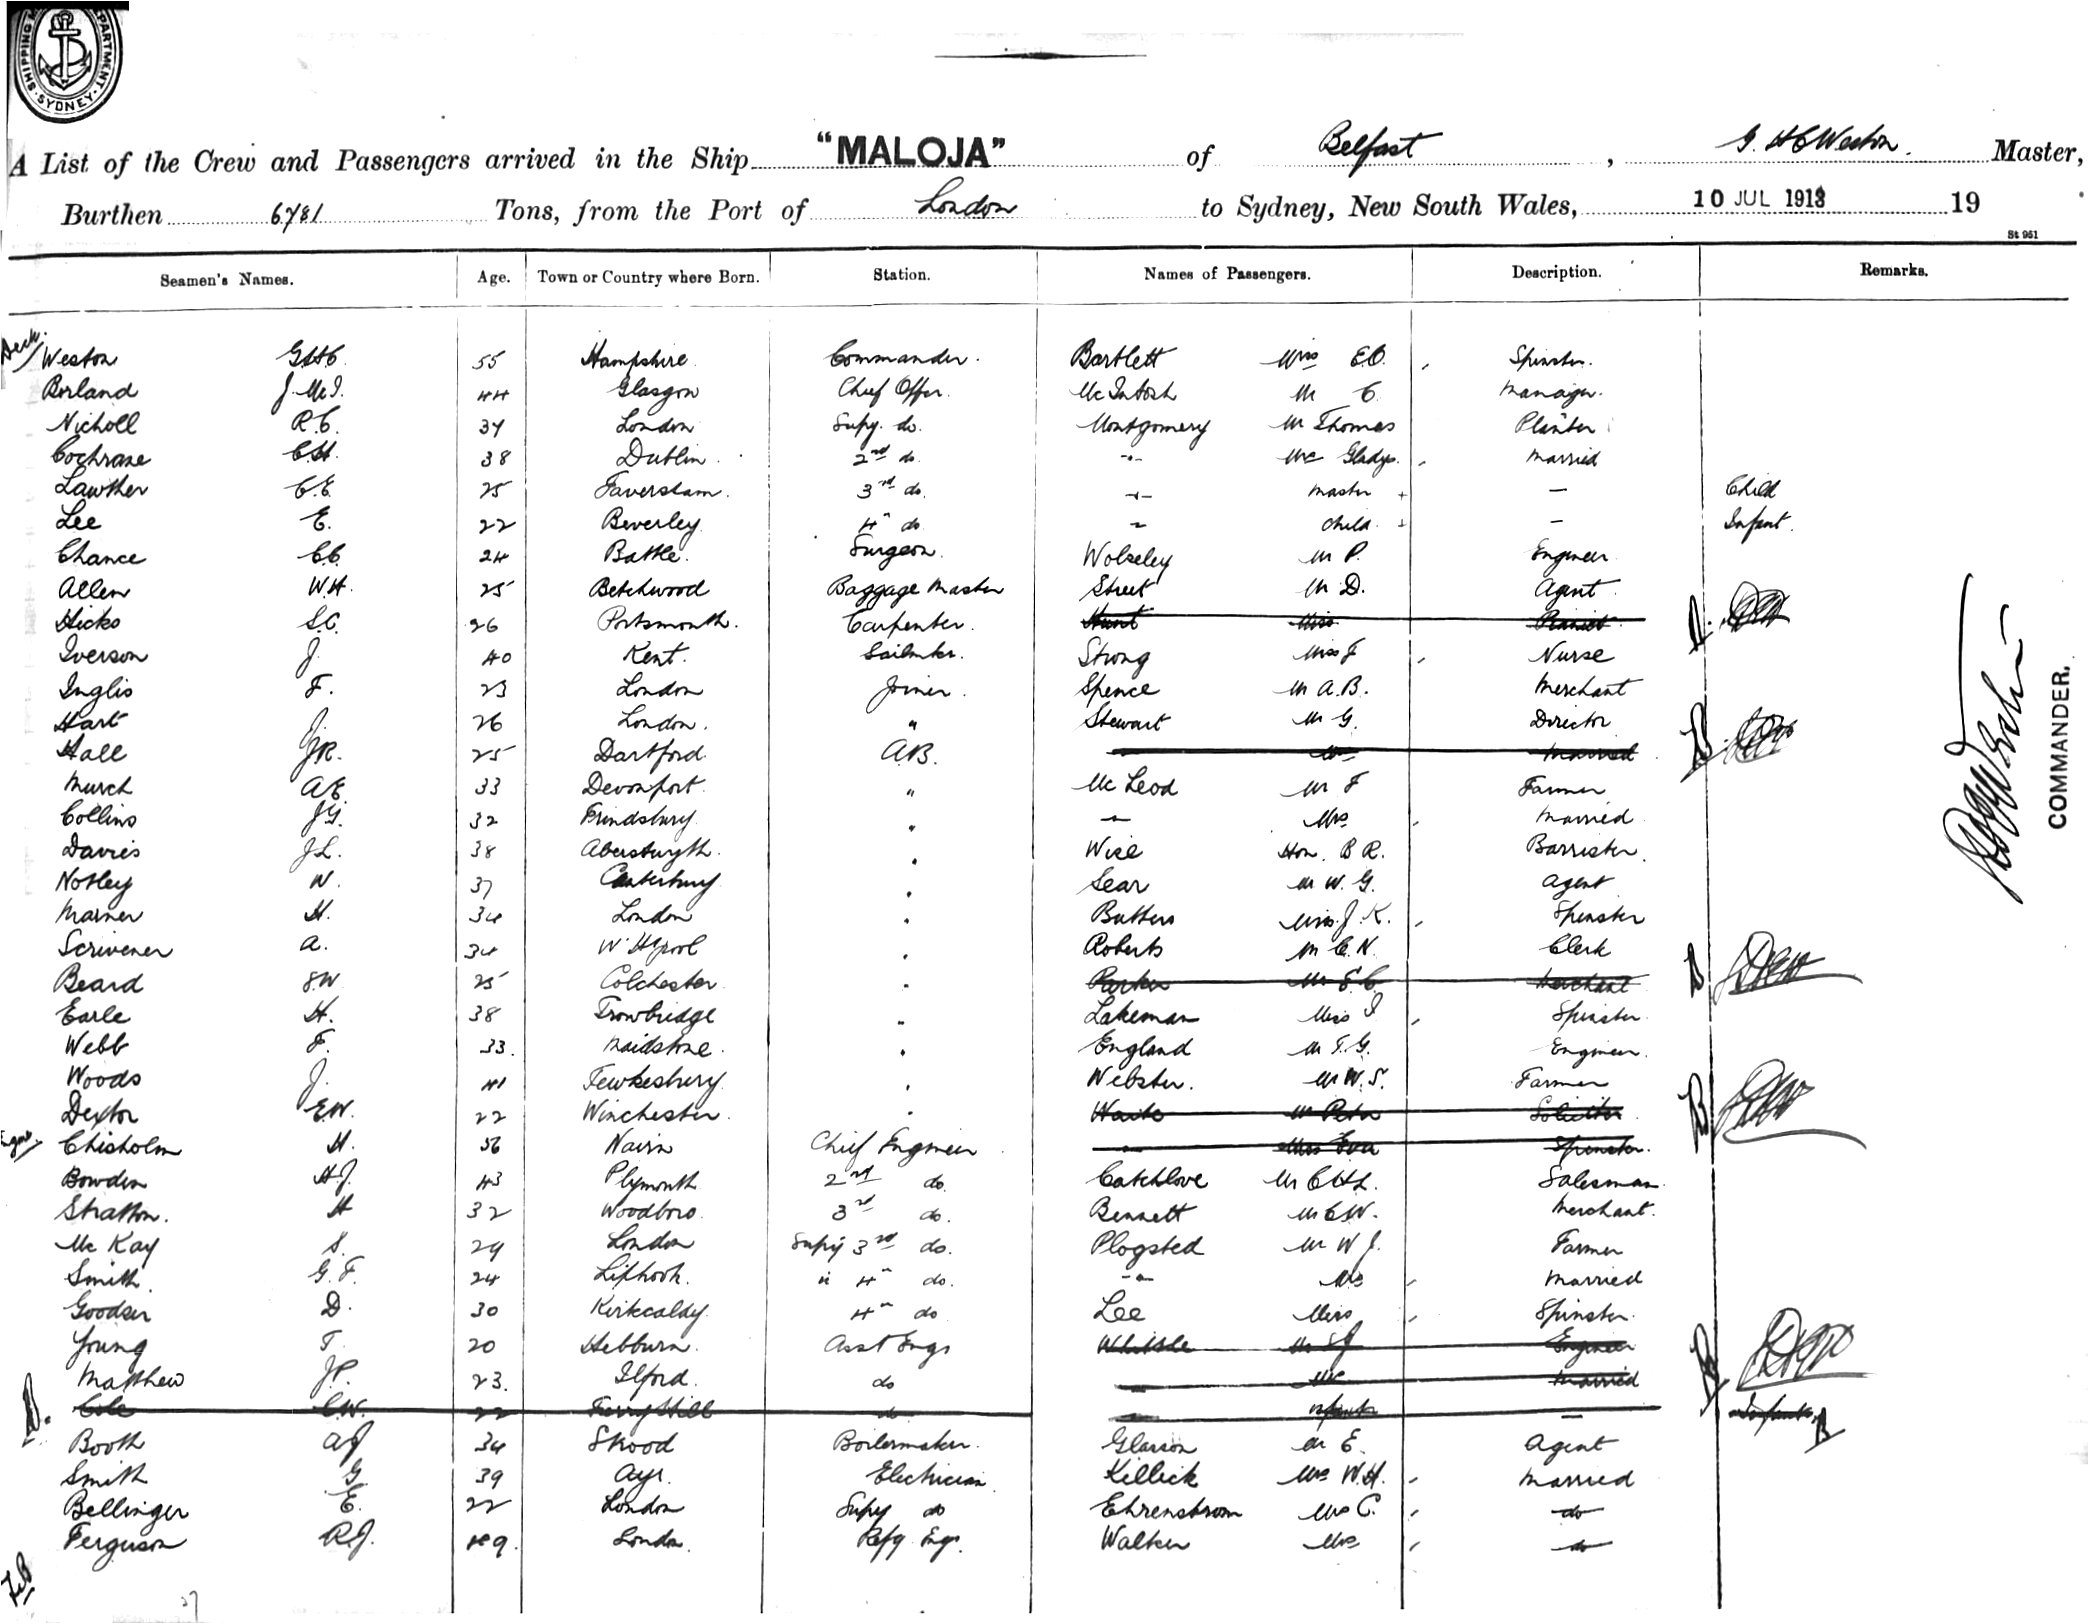 SHIPPING DEPARTMENT. SYDNEY.
A List of the Crew and Passengers arrived in the Ship "MALOJA" of Belfast, G. H C Weston. Master,
Burthen 6781 Tons, from the Port of London to Sydney, New South Wales, 10 JUL 1913 19
St 951
Seamen's Names. Age. Town or Country where Born. Station. Names of Passengers. Description. Remarks.
Deck
Weston G.H.C. 55 Hampshire. Commander. Bartlett Miss E.C. Spinster.
Borland J. McI. 44 Glasgow Chief Offr. McIntosh Mr C. Manager.
Nicholl R.C. 37 London Supy. do. Montgomery Mr Thomas Planter
Cochrane C.H. 38 Dublin. 2nd do. -"- Mrs Gladys. Married
Lawther C.E. 25 Faversham. 3rd do. -"- Master + — Child
Lee E. 22 Beverley 4" do " Child. + — Infant.
Chance C.C. 24 Battle. Surgeon. Wolseley Mr P. Engineer
Allen W.H. 25 Betchwood Baggage Master Street Mr D. Agent
Hicks S.C. 26 Portsmouth. Carpenter. Hunt Miss
Iverson J. 40 Kent. Sailmkr. Strong Miss J Nurse
Inglis F. 23 London Joiner. Spence Mr A.B. Merchant
Hart J. 26 London. " Stewart Mr G. Director
Hall J.R. 25 Dartford A.B. Married
Murch A.E. 33 Devonport. " McLeod Mr F Farmer
Collins J.G. 32 Frindsbury " — Mrs Married
Davies J.L. 38 Aberstwyth. " Wise Hon. B R. Barrister.
Notley W. 37 Canterbury " Sear Mr W. G. Agent
Marner H. 34 London " Butters Miss J. K. Spinster
Scrivener A. 34 W. H'pool " Roberts Mr C. N. Clerk
Beard S.W 25 Colchester " Parker Mr S.C. Merchant
Earle H. 38 Trowbridge " Lakeman Miss I Spinster.
Webb F. 33. Maidstone. " England Mr T.G. Engineer.
Woods J. 41 Tewkesbury. " Webster. Mr W.S. Farmer
Dexter E.W. 22 Winchester. " Waite Mr Peter Solicitor
Engrs.
Chisholm H. 56 Nairn Chief Engineer — Miss Eva Spinster.
Bowden H.J. 43 Plymouth 2nd do. Catchlove Mr C H L. Salesman
Stratton. H 32 Woodboro. 3rd do. Bennett Mr C W. Merchant.
McKay S. 29 London Supy 3rd do. Plogsted Mr W J. Farmer
Smith. G.F. 24 Liphook. " 4" do. -"- Mrs Married
Goodsir D. 30 Kirkcaldy. 4" do Lee Miss Spinster.
Young T. 20 Hebburn. Asst Engr Mr S J Engineer
Matthew J.P. 23. Ilford. do — Mrs Married
Cole C.W. 22 Ferryhill do — Infant — Infant
Booth A J 34 Strood Boilermaker. Glasson Mr E. Agent
Smith G. 39 Ayr. Electrician Killick Mrs W.H. Married
Bellinger E. 22 London Supy do Ehrenstrom Mrs C. do
Ferguson R.J. London. Refg. Engr. Walker Mrs do
COMMANDER.